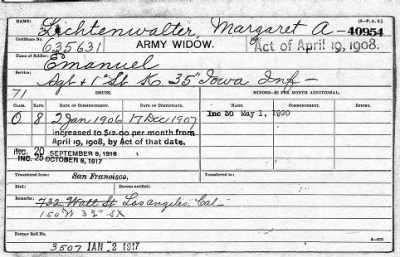 NAME: Lichtenwalter, Margaret A - 40954
Certificate No. 635631 ARMY WIDOW. Act of April 19, 1908.
Name of Soldier: Emanuel
Service: Sgt & 1" St K. 35" Iowa Inf -
71 ISSUE.
CLASS. RATE. DATE OF COMMENCEMENT. DATE OF CERTIFICATE. RATE. DATE OF COMMENCEMENT. DATE OF CERTIFICATE.
O 8 2 Jan 1906 17 Dec 1907 Inc 30 May 1, 1920
increased to $12.00 per month from
April 19, 1908, by Act of that date.
INC. 20 SEPTEMBER 8, 1916
INC. 25 OCTOBER 6, 1917
Transferred from: San Francisco,
Died: Bureau notified:
Remarks: 732 Watt St Los angeles, Cal -
150 W 32" St
Former Roll No.
3507 JAN 2 1917